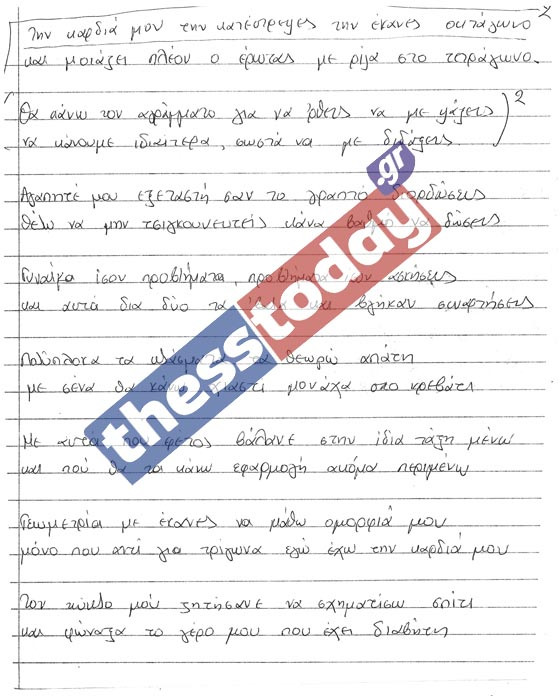 την καρδιά μου την κατέστρεψες την έκανες οκτάγωνο
και μοιάζει πλέον ο έρωτας με ρίζα στο τετράγωνο.
2
Θα κάνω τον αγράμματο για να ρθεις να με ψάξεις
2
να κάνουμε ιδιαίτερα, σωστά να με διδάξεις.
Αγαπητέ μου εξεταστή σαν το γραπτό διορθώσεις
θέλω να μην τσιγκουνευτείς κάνα βαθμό να δώσεις
Γυναίκα ίσον προβλήματα, προβλήματα ίσον ασκήσεις
και αυτά δια δύο τα και βγήκαν συναρτήσεις
Πολύπλοκα τα κλάσματα τα θεωρώ απάτη
με σένα θα κάνω χιαστί μονάχα στο κρεβάτι
Με αυτά που φέτος βάλανε στην ίδια τάξη μένω
και πού θα τα κάνω εφαρμογή ακόμα περιμένω
Γεωμετρία με έκανες να μάθω ομορφιά μου
μόνο που αντί για τρίγωνα εγώ έχω την καρδιά μου
Τον κύκλο μού ζητήσανε να σχηματίσω σπίτι
και φώναξα το γέρο μου που έχει διαβήτη
thesstoday.gr